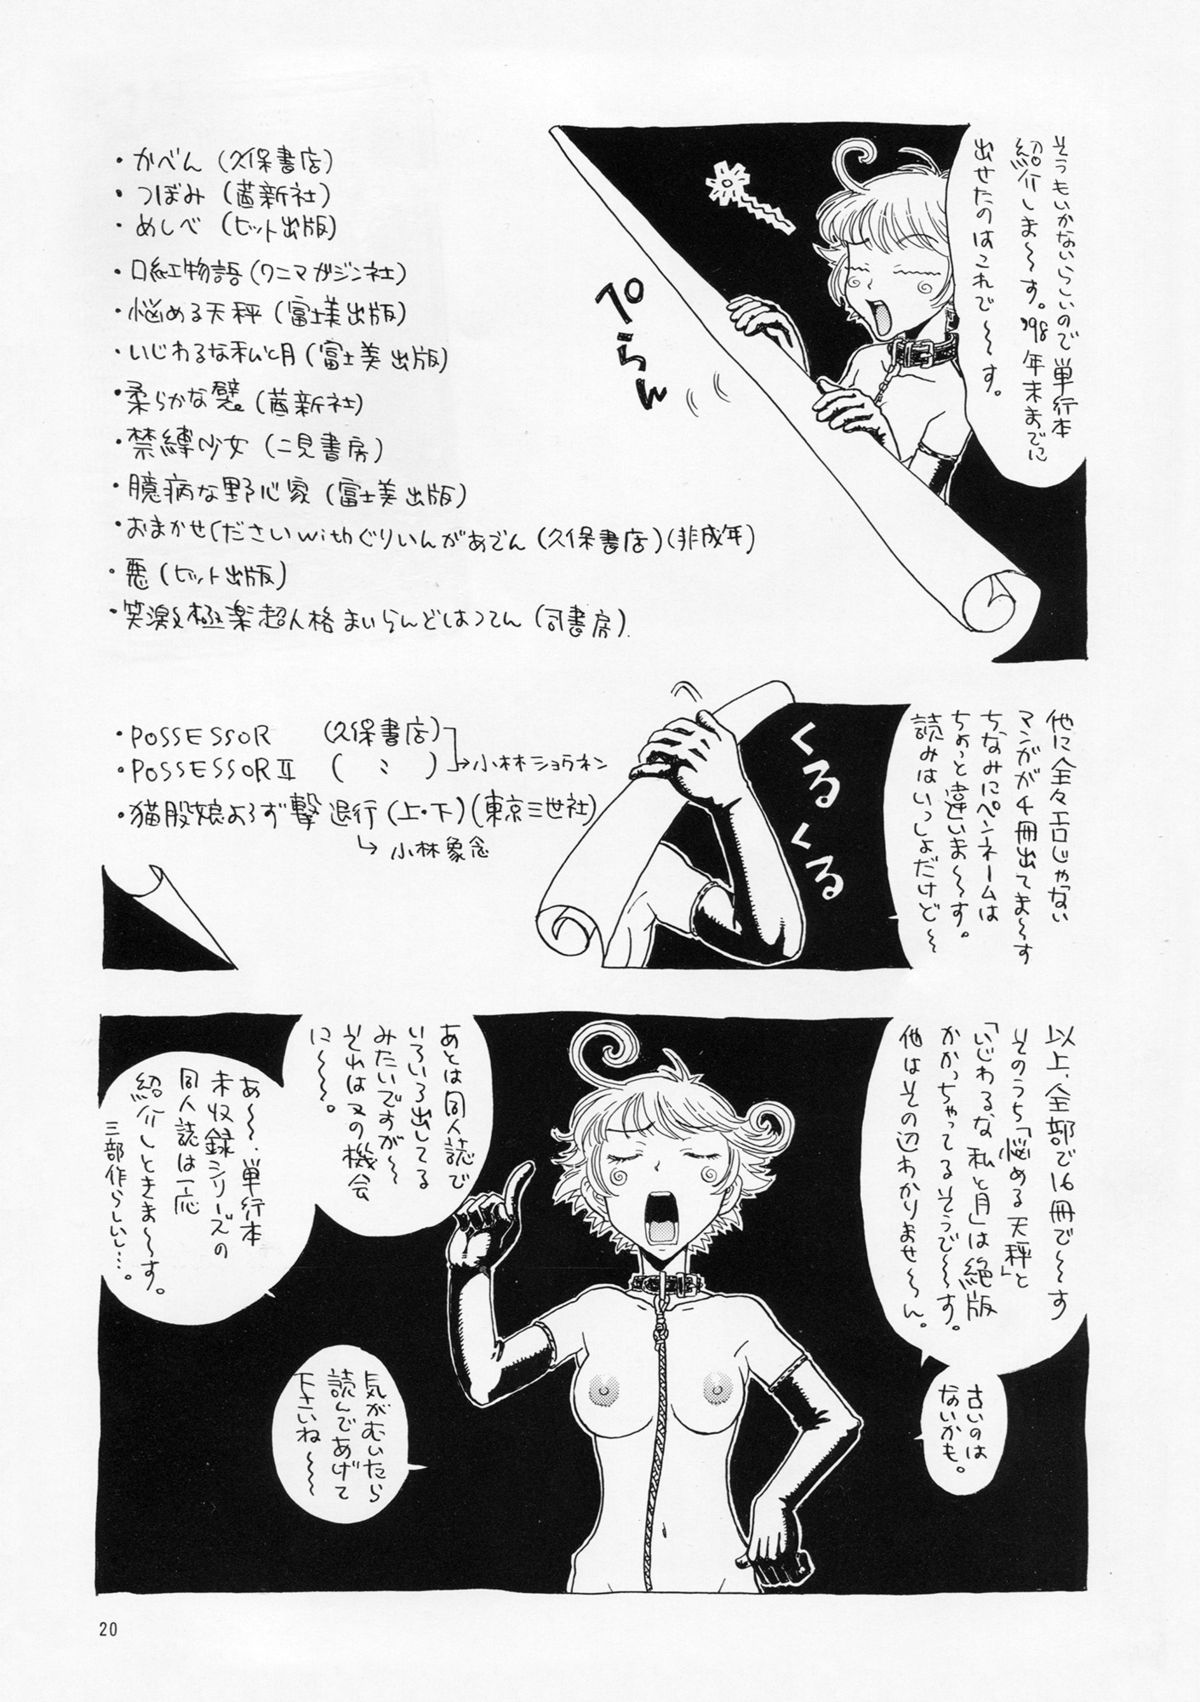 そうもいかないらしいので単行本
紹介しま〜〜す。'98年末までに
出せたのはこれで〜〜す。
ぺらん
・かべん(久保書店)
・つぼみ(茜新社)
・めしべ(ヒット出版)
・口紅物語(ワニマガジン社)
・悩める天秤(富士美出版)
・いじわるな私と月(富士美出版)
・柔らかな襞。(茜新社)
・禁縛少女(二見書房)
・臆病な野心家(富士美出版)
・おまかせくださいwithぐりいんがあでん(久保書店)(非成年)
・悪(ヒット出版)
・笑激極楽超人格まいらんどはつでん(司書房)
他に全々エロじゃない
マンガが4冊出てま〜す
ちなみにペンネームは
ちょっと違いま〜〜す。
読みはいっしょだけど〜
くるくる
・POSSESSOR (久保書店)
・POSSESSOR II ( 〃 )
→小林ショウネン
・猫股娘よろず撃退行(上・下)(東京三世社)
→小林象念
以上、全部で16冊で〜〜す
そのうち「悩める天秤」と
「いじわるな私と月」は絶版
かかっちゃってるそうで〜〜す。
他はその辺わかりませ〜ん。
古いのは
ないかも。
あとは同人誌で
いろいろ出してる
みたいですが〜
それは又の機会
に〜〜〜。
あ〜〜、単行本
未収録シリーズの
同人誌は一応
紹介しときま〜〜す。
三部作らしいし…。
気がむいたら
読んであげて
下さいね〜〜〜
20